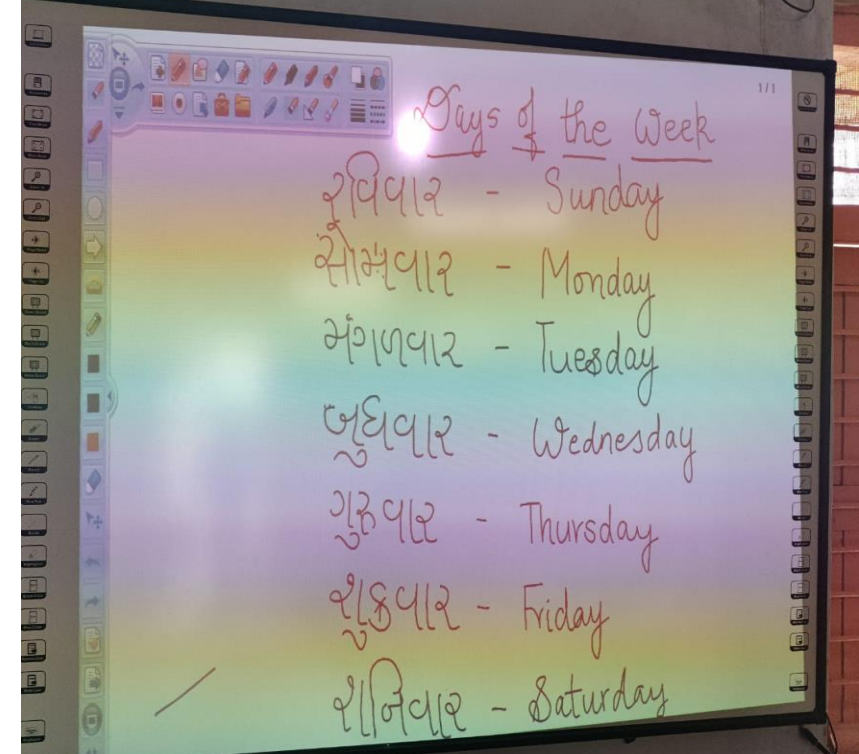 1/1
Days of the Week
રવિવાર - Sunday
સોમવાર - Monday
મંગળવાર - Tuesday
બુધવાર - Wednesday
ગુરુવાર - Thursday
શુક્રવાર - Friday
શનિવાર - Saturday